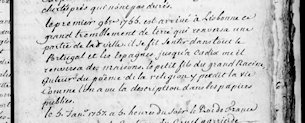 le premier 9bre 1755. est arrivé a Lisbonne ce
grand tremblement de terre qui renversa une
partie de la ville. il se fit sentir dans tout le
Portugal et les Espagnes jusqu'a Cadix ou il
renversa des maisons. le petit fils du grand Racine
auteur du poëme de la religion y perdit la vie
comme l'on a vu la description dans les papiers
publics.
le 5. Janv. 1757. a 6. heures du soir le Roi de France